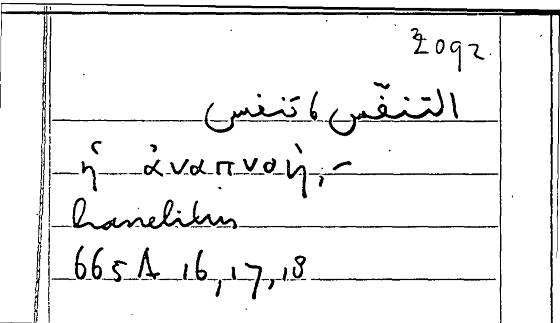 2092
التنفّس ، تنفس
ἡ ἀναπνοὴ,-
hanelitus
665A 16,17,18